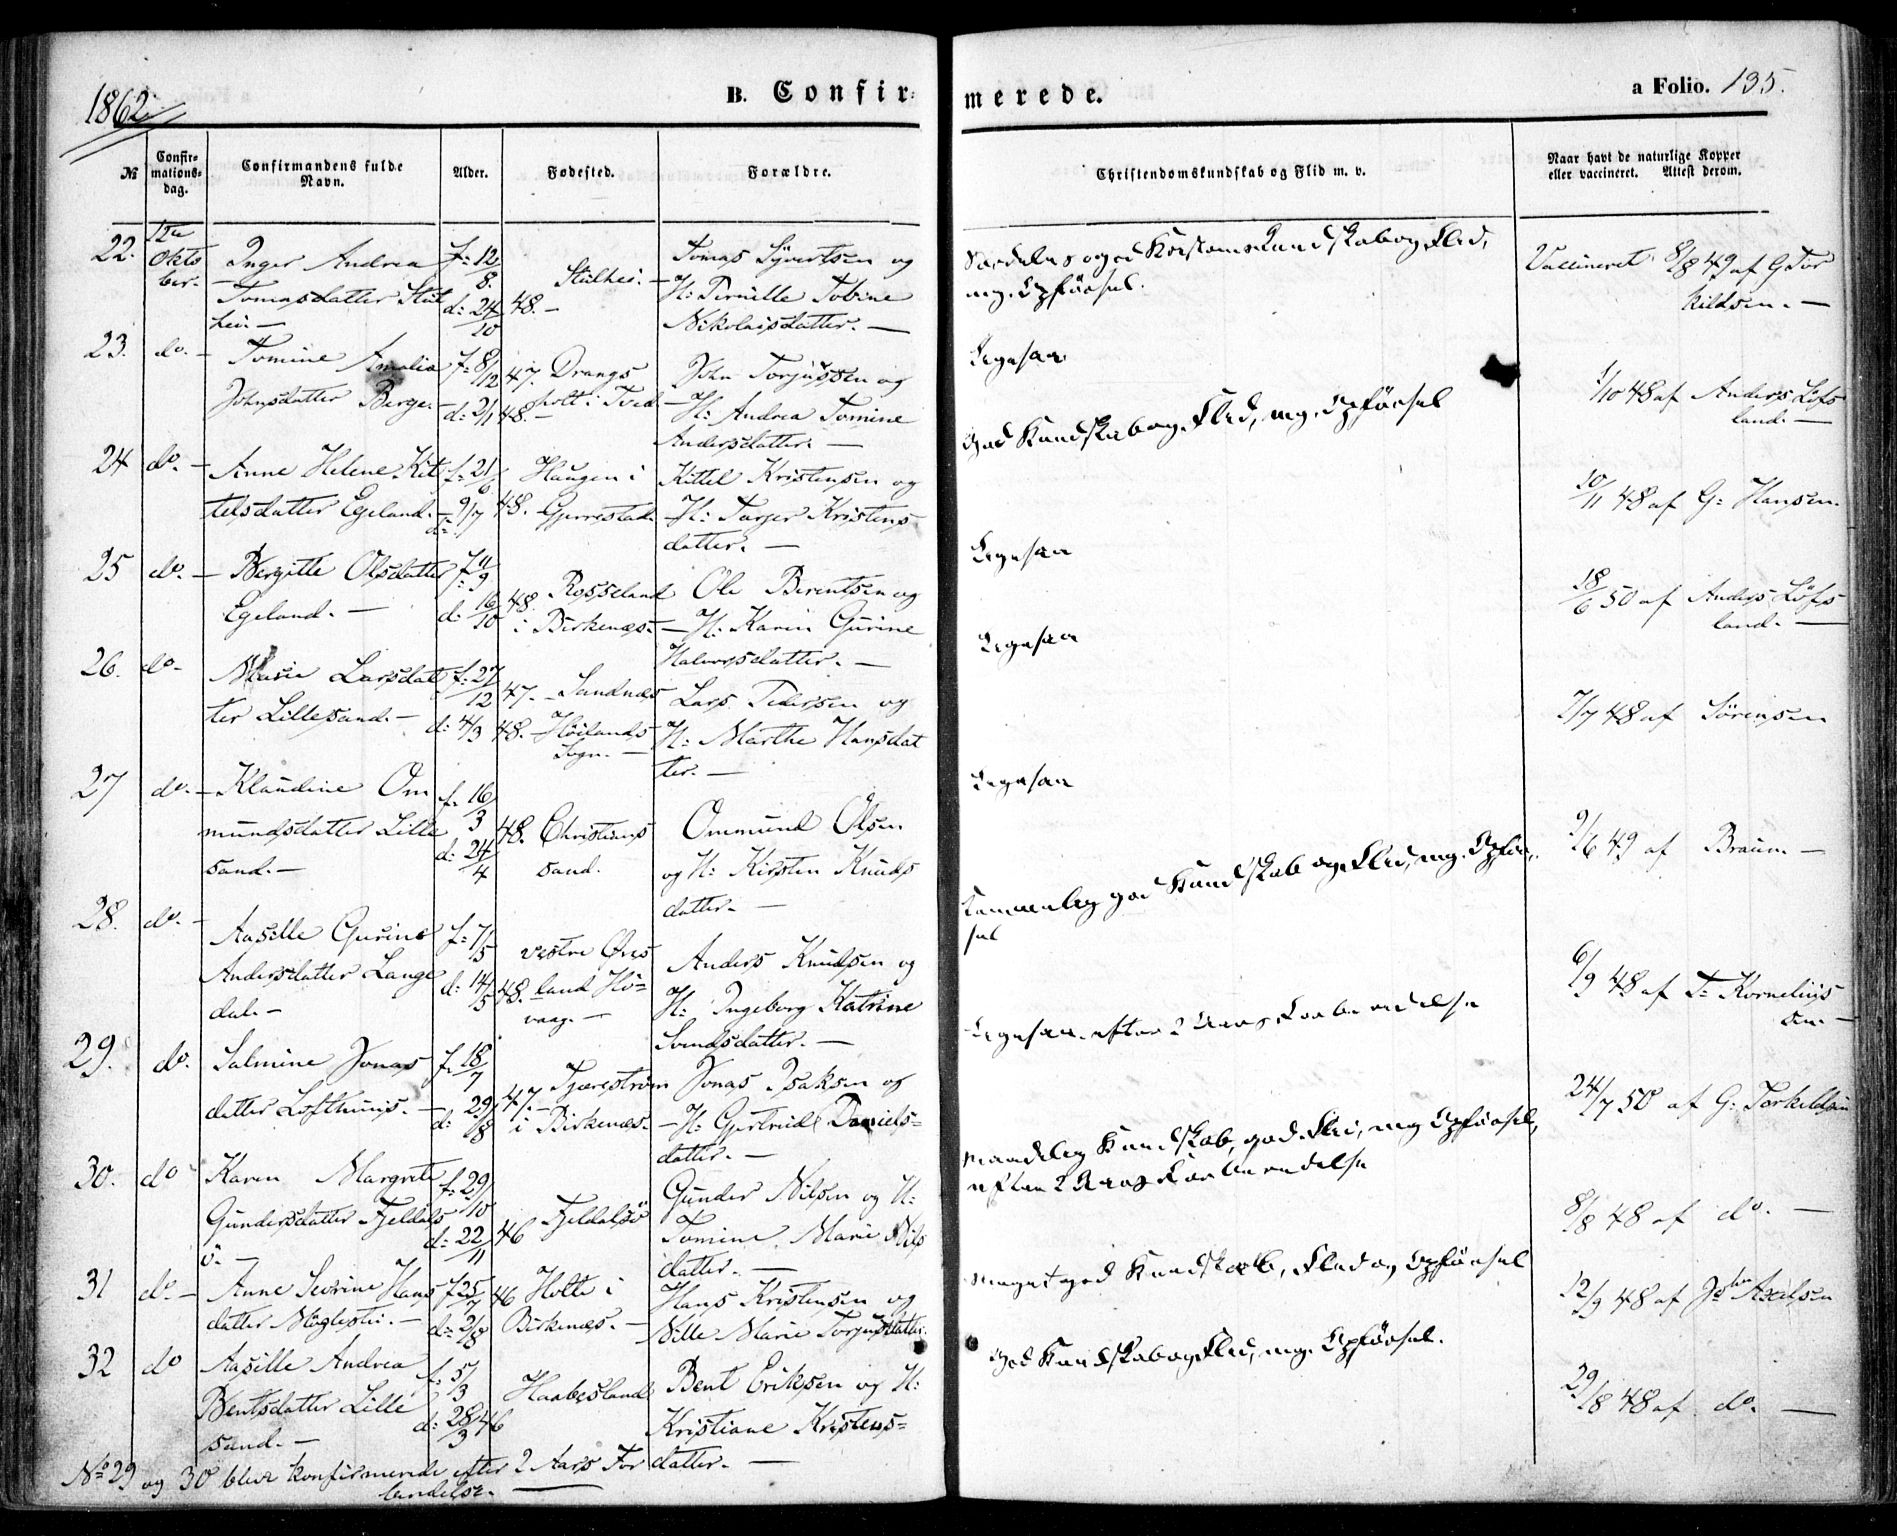 1862.
B. Confir=
merede.
a Folio. 135.
№
Confir=
mations=
dag.
Confirmandens fulde
Navn.
Alder.
Fødested.
Forældre.
Christendomskundskab og Flid m. v.
Naar havt de naturlige Kopper
eller vaccineret. Attest derom.
22.
12te
Okto
ber.
Inger Andrea
Tomasdatter Stul
hei. —
f: 12/8.
d: 24/10 48. —
Stulhei. —
Tomas Syvertsen og
H: Pernille Tobine
Nikolaisdatter. —
Særdeles god Kristomskundskab og Flid,
mg. Opførsel.
Vaccineret 8/8 49 af G Tor
kildsen. —
23. do. —
Tomine Amalia
Johnsdatter Berge. —
f: 8/12 47.
d: 2/1 48. —
Drangs
holt i Tved. —
John Torjussen og
H: Andrea Tomine
Andersdatter. —
Ligesaa
1/10 48 af Anders Løfs
land. —
24 do. —
Anne Helene Kit
telsdatter Egeland. —
f: 21/6
d: 9/7 48.
Haugen i
Gjerrestad. —
Kittel Kristensen og
H: Tarjer Kristens
datter. —
God Kundskab og Flid, mg. Opførsel
10/11 48 af G: Hansen.
25 do. —
Bergitte Olsdatter
Egeland. —
f: 11/9
d: 16/10 48.
Rosseland
i Birkenæs. —
Ole Berentsen og
H: Karin Gurine
Halvorsdatter. —
Ligesaa
18/6 50 af Anders Løfs
land. —
26. do —
Marie Larsdat
ter Lillesand. —
f: 27/12 47. —
d: 4/3 48. —
Sandnæs
Høilands
Sogn. —
Lars Pedersen og
H: Marthe Hansdat
ter. —
Ligesaa
7/7 48 af Sørensen
27 do. —
Klaudine Om
mundsdatter Lille
sand. —
f: 16/3
d: 24/4 48.
Christians
sand.
Ommund Olsen
og H: Kirsten Knuds
datter. —
Ligesaa
9/6 49 af Braum —
28. do. —
Aasille Gurine
Andersdatter Lange
dal. —
f: 7/5
d: 14/5 48.
vestre Øves
land Hø=
vaag. —
Anders Knudsen og
H: Ingeborg Katrine
Svendsdatter. —
Temmelig god Kundskab og Flid, mg. Opfør
sel
6/9 48 af T: Kornelius
sen. —
29. do.
Salmine Jonas
datter Lofthuus. —
f: 18/7
d: 29/8 47. —
Tjærestrøm
i Birkenæs. —
Jonas Isaksen og
H: Gjertrude Daniels=
datter. —
Ligesaa. efter 2 Aars Forberedelse
24/7 50 af G: Torkildsen
30. do
Karen Margrete
Gundersdatter Fjeldals
ö. —
f: 29/10
d: 22/11 46
Fjeldalsö
Gunder Nilsen og H:
Tomine Marie Nils
datter. —
maadelig Kundskab, god Flid, mg Opførsel,
efter 2 Aars Forberedelse
8/8 48 af do. —
31 do —
Anne Severine Hans
datter Møglestu. —
f 25/7 46
d: 2/8
Holte i
Birkenæs. —
Hans Kristensen og
Nille Marie Torjusdatter.
meget god Kundskab, Flid og Opførsel
12/9 48 af John Axelsen
32 do
Aasille Andrea
Bentsdatter Lille
sand. —
f: 5/3
d: 28/3 46
Haabesland
Bent Eriksen og H:
Kristiane Kristens=
datter. —
God Kundskab og Flid, mg. Opførsel.
29/8 48 af do. —
No 29 og 30 bleve konfirmerede efter 2 Aars For
beredelse. —